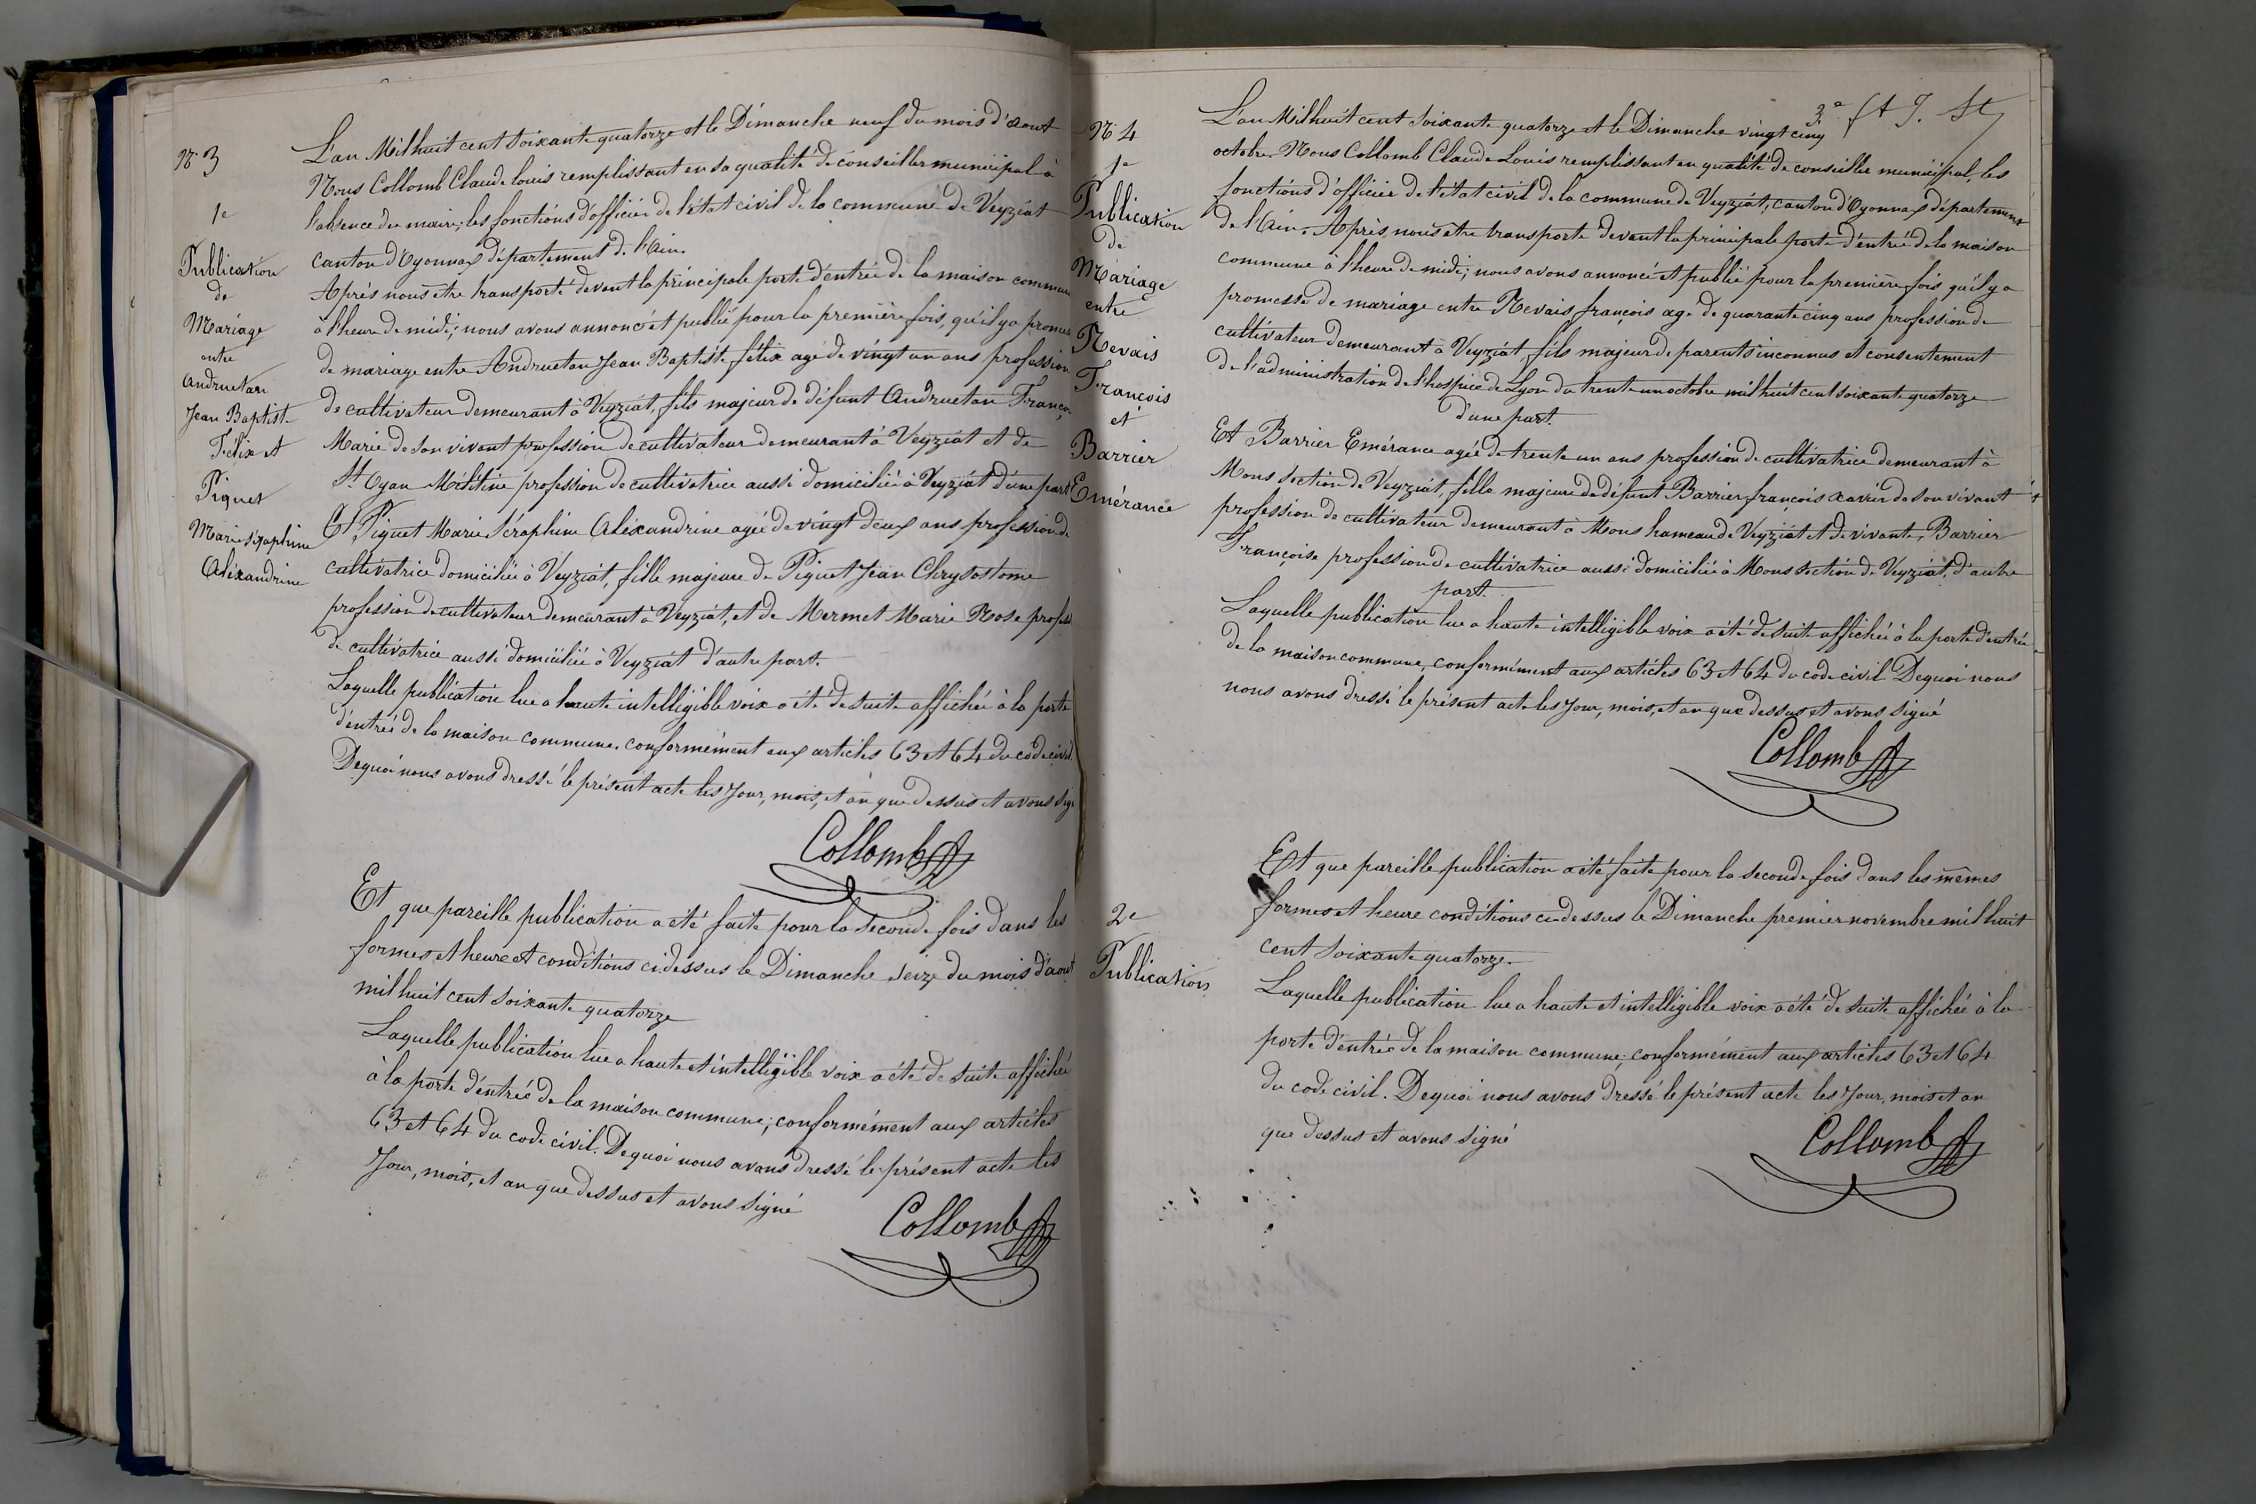 N° 3
1e
Publication
de
Mariage
entre
Andruetan
Jean Baptiste
Félix et
Piquet
Marie Séraphine
Alexandrine
L'an Mil huit cent soixante quatorze et le Dimanche neuf du mois d'aout
Nous Collomb Claude louis remplissant en sa qualité de conseiller municipal à
l'absence du maire; les fonctions d'officier de l'état civil de la commune de Veyziat
canton d'Oyonnax département de l'Ain.
Après nous être transporté devant la principale porte d'entrée de la maison commune
à l'heure de midi; nous avons annoncé et publié pour la première fois, qu'il y a promesse
de mariage entre Andruetan Jean Baptiste félix agé de vingt un ans profession
de cultivateur demeurant à Veyziat, fils majeur de défunt Andruetan François
Marie de son vivant profession de cultivateur demeurant à Veyziat et de
St Oyan Mélitine profession de cultivatrice aussi domiciliée à Veyziat d'une part
Et Piquet Marie Séraphine Alexandrine agée de vingt deux ans profession de
cultivatrice domiciliée à Veyziat, fille majeure de Piquet Jean Chrysostome
profession de cultivateur demeurant à Veyziat, et de Mermet Marie Rose profess
de cultivatrice aussi domiciliée à Veyziat d'autre part.
Laquelle publication lue a haute intelligible voix a été de suite affichée à la porte
d'entrée de la maison commune, conformément aux articles 63 et 64 du code civil.
De quoi nous avons dressé le présent acte les Jour, mois, et an que dessus et avons sig
Collomb
Et que pareille publication a été faite pour la seconde fois dans les
formes et heure et conditions ci dessus le Dimanche seize du mois d'aout
mil huit cent soixante quatorze
Laquelle publication lue a haute et intelligible voix a été de suite affichée
à la porte d'entrée de la maison commune; conformément aux articles
63 et 64 du code civil. De quoi nous avons dressé le présent acte les
Jour, mois, et an que dessus et avons signé
Collomb
N° 4
1e
Publication
de
Mariage
entre
Nevais
François
et
Barrier
Emérance
3e
L'an Mil huit cent soixante quatorze et le Dimanche vingt cinq
octobre. Nous Collomb Claude Louis remplissant en qualité de conseiller municipal, les
fonctions d'officier de l'état civil de la commune de Veyziat, canton d'Oyonnax département
de l'Ain. Après nous être transporté devant la principale porte d'entrée de la maison
commune à l'heure de midi; nous avons annoncé et publié pour la première fois qu'il y a
promesse de mariage entre Nevais françois agé de quarante cinq ans profession de
cultivateur demeurant à Veyziat, fils majeur de parents inconnus et consentement
de l'administration de l'hospice de Lyon du trente un octobre mil huit cent soixante quatorze
d'une part.
Et Barrier Emérance agée de trente un ans profession de cultivatrice demeurant à
Mons section de Veyziat, fille majeure de défunt Barrier françois xavier de son vivant
profession de cultivateur demeurant à Mons hameau de Veyziat et de vivante, Barrier
Françoise profession de cultivatrice aussi domiciliée à Mons section de Veyziat, d'autre
part.
Laquelle publication lue a haute intelligible voix a été de suite affichée à la porte d'entrée
de la maison commune, conformément aux articles 63 et 64 du code civil. De quoi nous
nous avons dressé le présent acte les Jour, mois, et an que dessus et avons signé
Collomb
2e
Publication
Et que pareille publication a été faite pour la seconde fois dans les mêmes
formes et heure conditions ci dessus le Dimanche premier novembre mil huit
cent soixante quatorze.
Laquelle publication lue a haute et intelligible voix a été de suite affichée à la
porte d'entrée de la maison commune; conformément aux articles 63 et 64
du code civil. De quoi nous avons dressé le présent acte les Jour, mois et an
que dessus et avons signé
Collomb